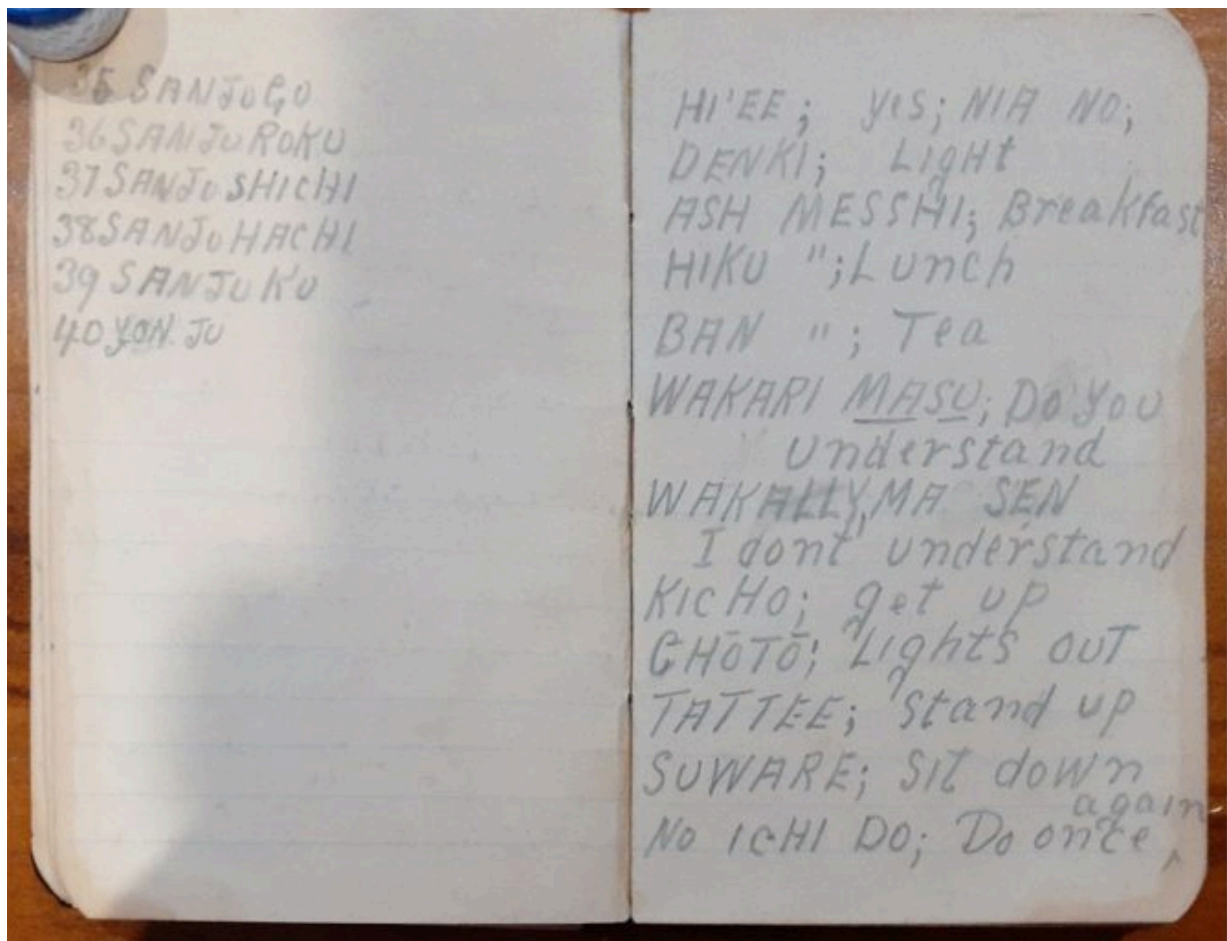 35 SANJUGO
36 SANJUROKU
37 SANJUSHICHI
38 SANJUHACHI
39 SANJUKU
40 YON. JU
HI'EE; yes; NIA NO;
DENKI; LIgHt
ASH MESSHI; Breakfast
HIKU "; Lunch
BAN "; Tea
WAKARI MASU; Do you
understand
WAKALLY, MA SEN
I dont understand
KICHO; get up
CHŌTŌ; Lights OUT
TATTEE; Stand up
SUWARE; Sit down
again
NO ICHI DO; Do once ^